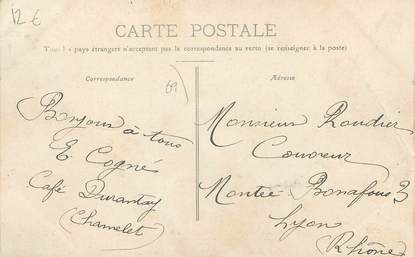 12 €
CARTE POSTALE
Tous les pays étrangers n'acceptent pas la correspondance au recto (se renseigner à la poste)
Correspondance
Adresse
69
Bonjour à tous
E. Cogné
Café Durantay
(Chamelet)
Monsieur Roudier
Couvreur
Montée Bonafous 3
Lyon
Rhône